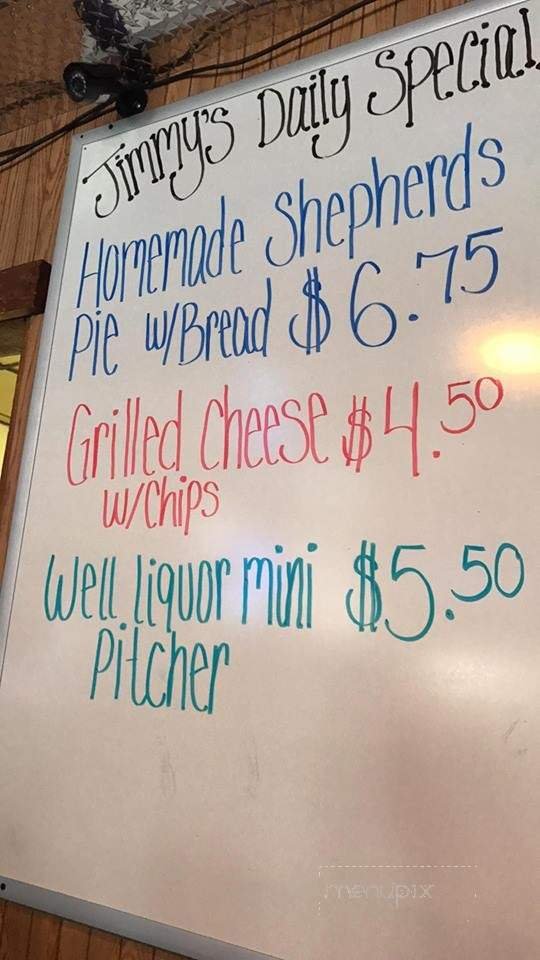 Jimmy's Daily Special
Homemade Shepherds
Pie w/Bread $6.75
Grilled Cheese $4.50
w/Chips
Well Liquor mini $5.50
Pitcher
menupix